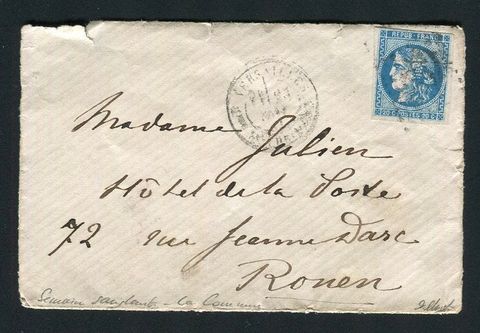 REPUB. FRANC.
VERSAILLES
20 C. POSTES 20 C.
Madame Julien
Hôtel de la Poste
72 rue Jeanne Darc
Rouen
Semaine sanglante - La Commune